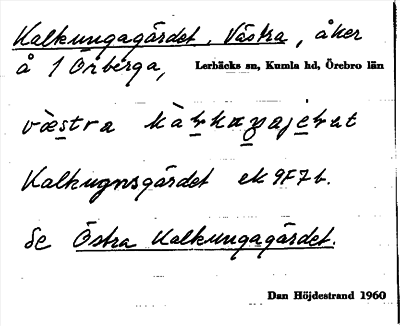 Kalkungagärdet, Västra, åker
å 1 Örberga, Lerbäcks sn, Kumla hd, Örebro län
Kalkugnsgärdet ek 9F7b.
Se Östra Kalkungagärdet.
Dan Höjdestrand 1960